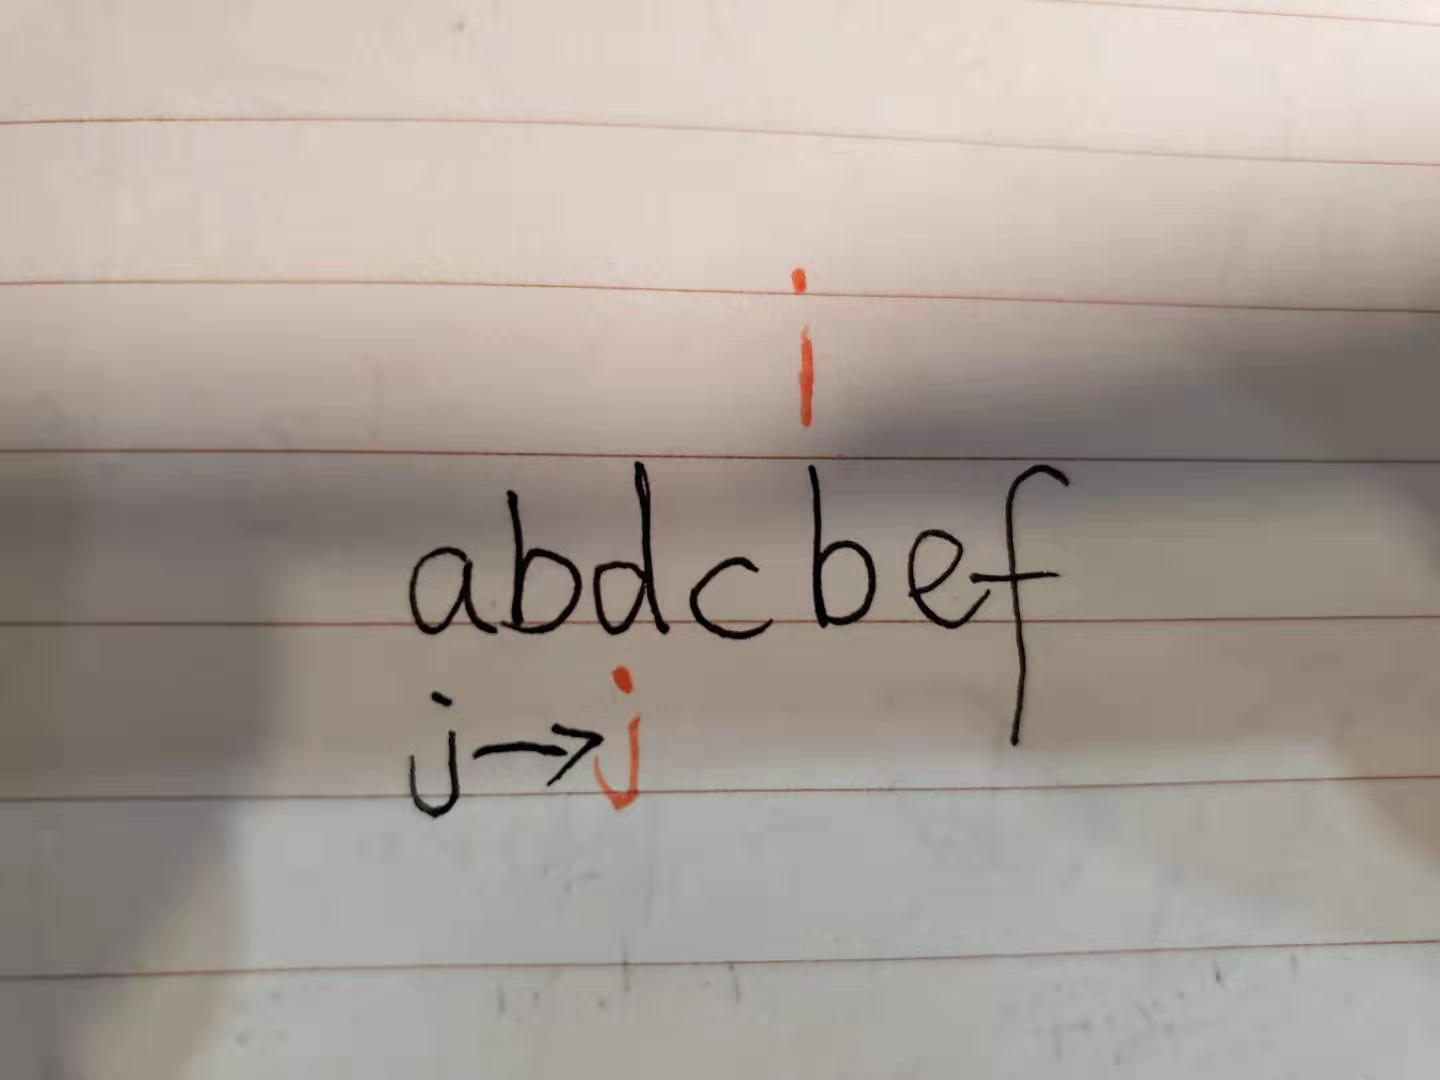 i
abdcbef
j→j